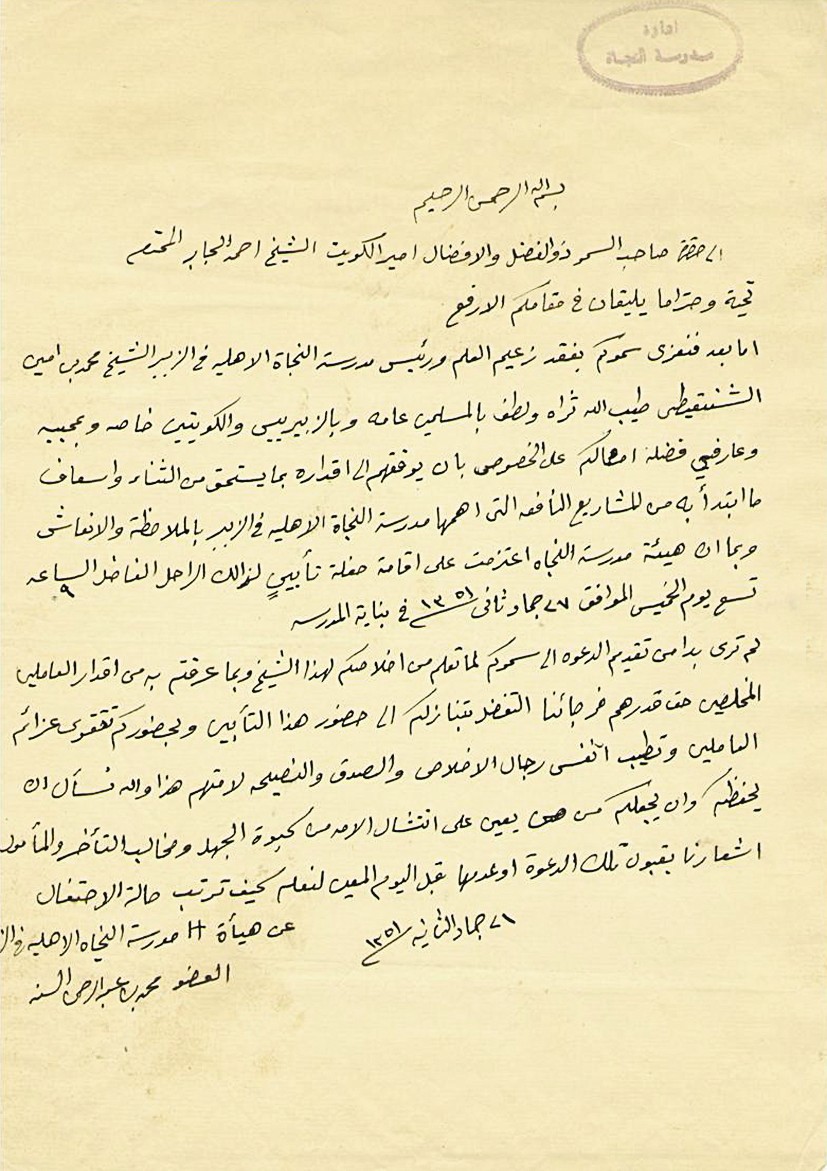 ادارة
مدرسة النجاة
بسم الله الرحمن الرحيم
الى حضرة صاحب السمو ذو الفضل والافضال امير الكويت الشيخ احمد الجابر المحترم
تحية وحتراما يليقان في مقامكم الارفع
اما بعد فنعزى سموكم بفقد زعيم العلم ورئيس مدرسة النجاة الاهليه في الزبير الشيخ محمد بن امين
الشنقيطى طيب الله ثراه ولطف بالمسلمين عامه وبالزبيريين والكويتيين خاصه وبمحبيه
وعارفي فضله امثالكم على الخصوص بان يوفقهم الى اقداره بما يستحق من الثناء واسعاف
ما ابتدأ به من المشاريع النافعه التى اهمها مدرسة النجاة الاهليه في الزبير بالملاحظة والانعاش
وبما ان هيئة مدرسة النجاه اعتزمت على اقامة حفلة تأبين لذالك الراحل الفاضل الساعه ٩
تسع يوم الخميس الموافق ٢٧ جماد ثانى ١٣٥١ في بناية المدرسه
لم ترى بدا من تقديم الدعوه الى سموكم لما تعلم من اخلاصكم لهذا الشيخ وبما عرفتم به من اقدار العاملين
المخلصين حق قدرهم فرجائنا التفضل بتنازلكم الى حضور هذا التأبين وبحضوركم تتقوى عزائم
العاملين وتطيب انفس رجال الاخلاص والصدق والنصيحه لامتهم هذا والله نسأل ان
يحفظكم وان يجعلكم من يعين على انتشال الامه من كبوة الجهل ومخالب التأخر والمأمول
اشعارنا بقبول تلك الدعوة او عدمها قبل اليوم المعين لنعلم كيف ترتب حالة الاحتفال
٢١ جماد الثانيه ١٣٥١
عن هيأة مدرسة النجاه الاهليه في
العضو محمد بن عبد الرحمن السنه